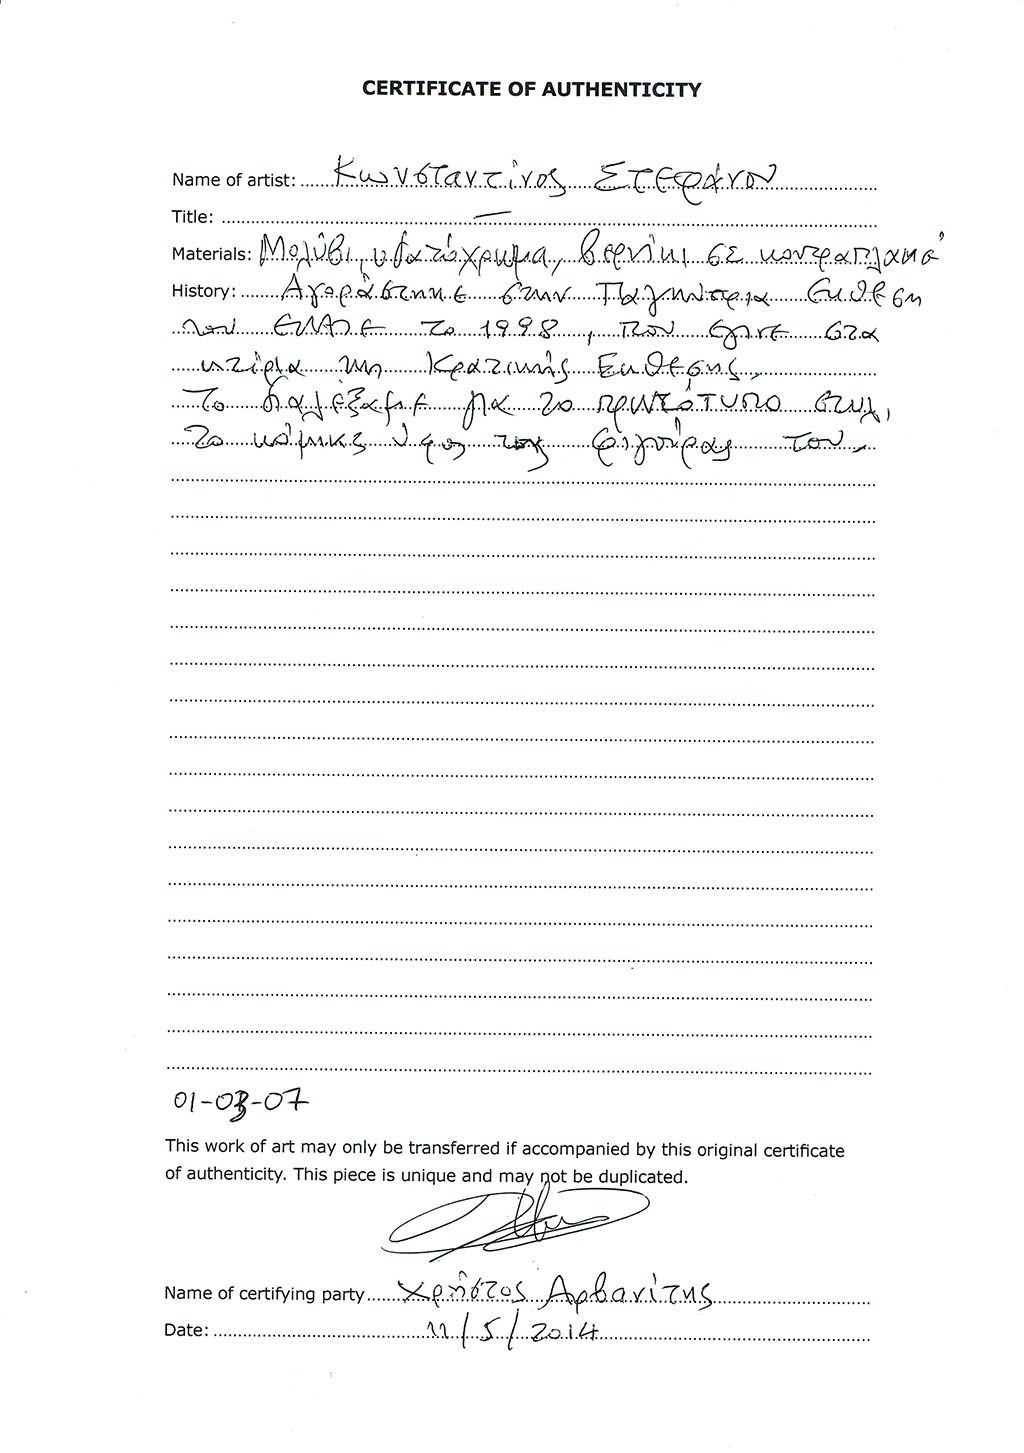 CERTIFICATE OF AUTHENTICITY
Name of artist: Κωνσταντίνος Στεφάνου
Title: —
Materials: Μολύβι, υδατόχρωμα, βερνίκι σε κοντραπλακέ
History: Αγοράστηκε στην Παγκύπρια Έκθεση
του ΕΚΑΤΕ το 1998, που έγινε στα
κτίρια της Κρατικής Εκθέσης.
Το διαλέξαμε για το πρωτότυπο στυλ,
το κόμικς ύφος της φιγούρας του.
01-03-07
This work of art may only be transferred if accompanied by this original certificate
of authenticity. This piece is unique and may not be duplicated.
Name of certifying party Χρήστος Αρβανίτης
Date: 11/5/2014